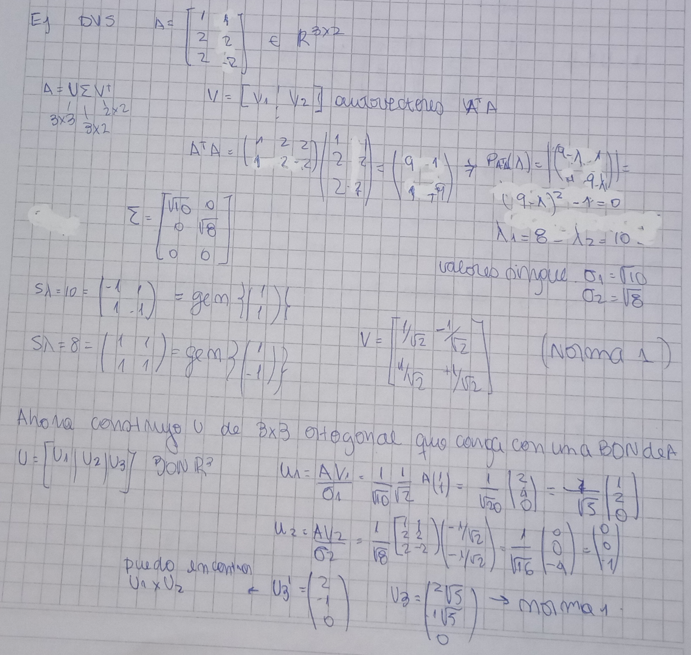 Ej DVS A = [1 1; 2 2; 2 -2] ∈ R^{3×2}
A = UΣV^t
3x3 3x2 2x2
V = [V1 ¦ V2] autovectores AᵀA
AᵀA = (1 2 2; 1 2 -2)(1 1; 2 2; 2 -2) = (9 1; 1 9) ⇒ P_{AᵀA}(λ) = |(9-λ -1; -1 9-λ)| =
(9-λ)² - 1 = 0
Σ = [√10 0; 0 √8; 0 0]
λ1 = 8 - λ2 = 10
valores singul. σ1 = √10
σ2 = √8
Sλ=10 = (-1 1; 1 -1) = gen {(1; 1)}
Sλ=8 = (1 1; 1 1) = gen {(1; -1)}
V = [1/√2 -1/√2; 1/√2 +1/√2] (Norma 1)
Ahora construyo U de 3x3 ortogonal que con una BON de A
U = [U1 | U2 | U3] BON R³
u1 = AV1/σ1 = 1/√10 1/√2 A(1; 1) = 1/√20 (2; 4; 0) = 1/√5 (1; 2; 0)
u2 = AV2/σ2 = 1/√8 [1 1; 2 2; 2 -2] (-1/√2; -1/√2) = 1/√16 (0; 0; -4) = (0; 0; -1)
puedo encontrar
U1 x U2 ← U3' = (2; -1; 0) U3 = (2√5; 1√5; 0) → norma 1.